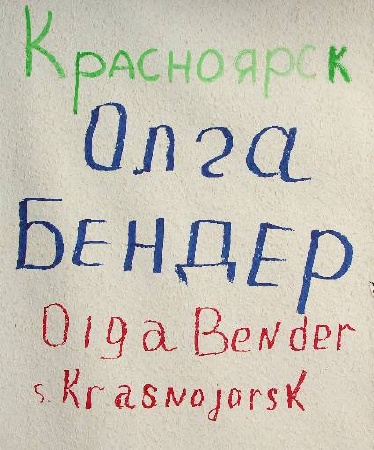 Красноярск
Олга
БЕНДЕР
Olga Bender
s. Krasnojorsk